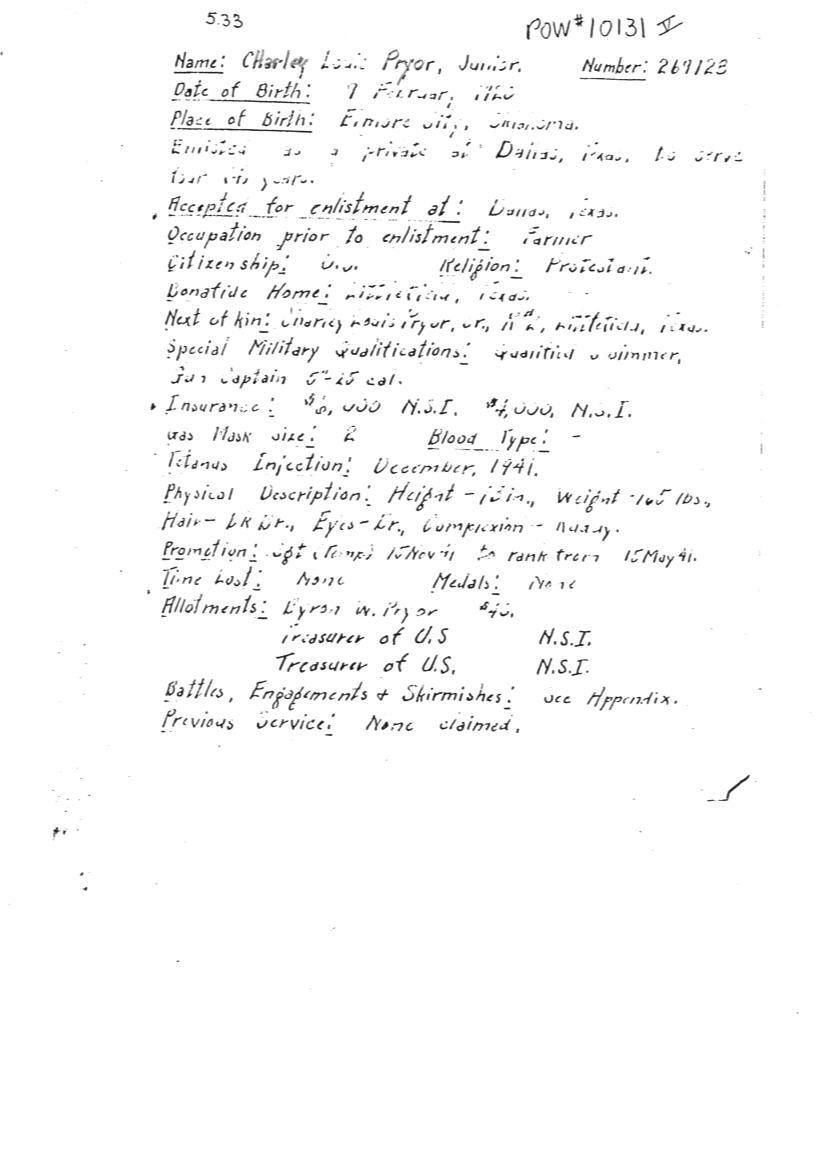 5.33
POW#10131 V
Name: Charley Louis Pryor, Junior. Number: 269123
Date of Birth: February, 1920
Place of Birth: Elmore City, Oklahoma.
Enlisted as a private at Dallas, Texas, to serve
four years.
Accepted for enlistment at: Dallas, Texas.
Occupation prior to enlistment: Farmer
Citizenship: U.S. Religion: Protestant.
Bonafide Home: Littlefield, Texas.
Next of kin: Charley Louis Pryor, Sr., Littlefield, Texas.
Special Military Qualifications: Qualified Swimmer,
Gun Captain 5"-25 cal.
Insurance: 000 N.S.I. $4,000, N.S.I.
Gas Mask Size: 2 Blood Type: -
Tetanus Injection: December, 1941.
Physical Description: Height - in., Weight - 165 lbs.,
Hair - Dk Br., Eyes - Br., Complexion - Ruddy.
Promotion: Sgt (Temp) 15 Nov 41 to rank from 15 May 41.
Time Lost: None Medals: None
Allotments: Byron W. Pryor
Treasurer of U.S N.S.I.
Treasurer of U.S. N.S.I.
Battles, Engagements + Skirmishes: See Appendix.
Previous Service: None claimed.